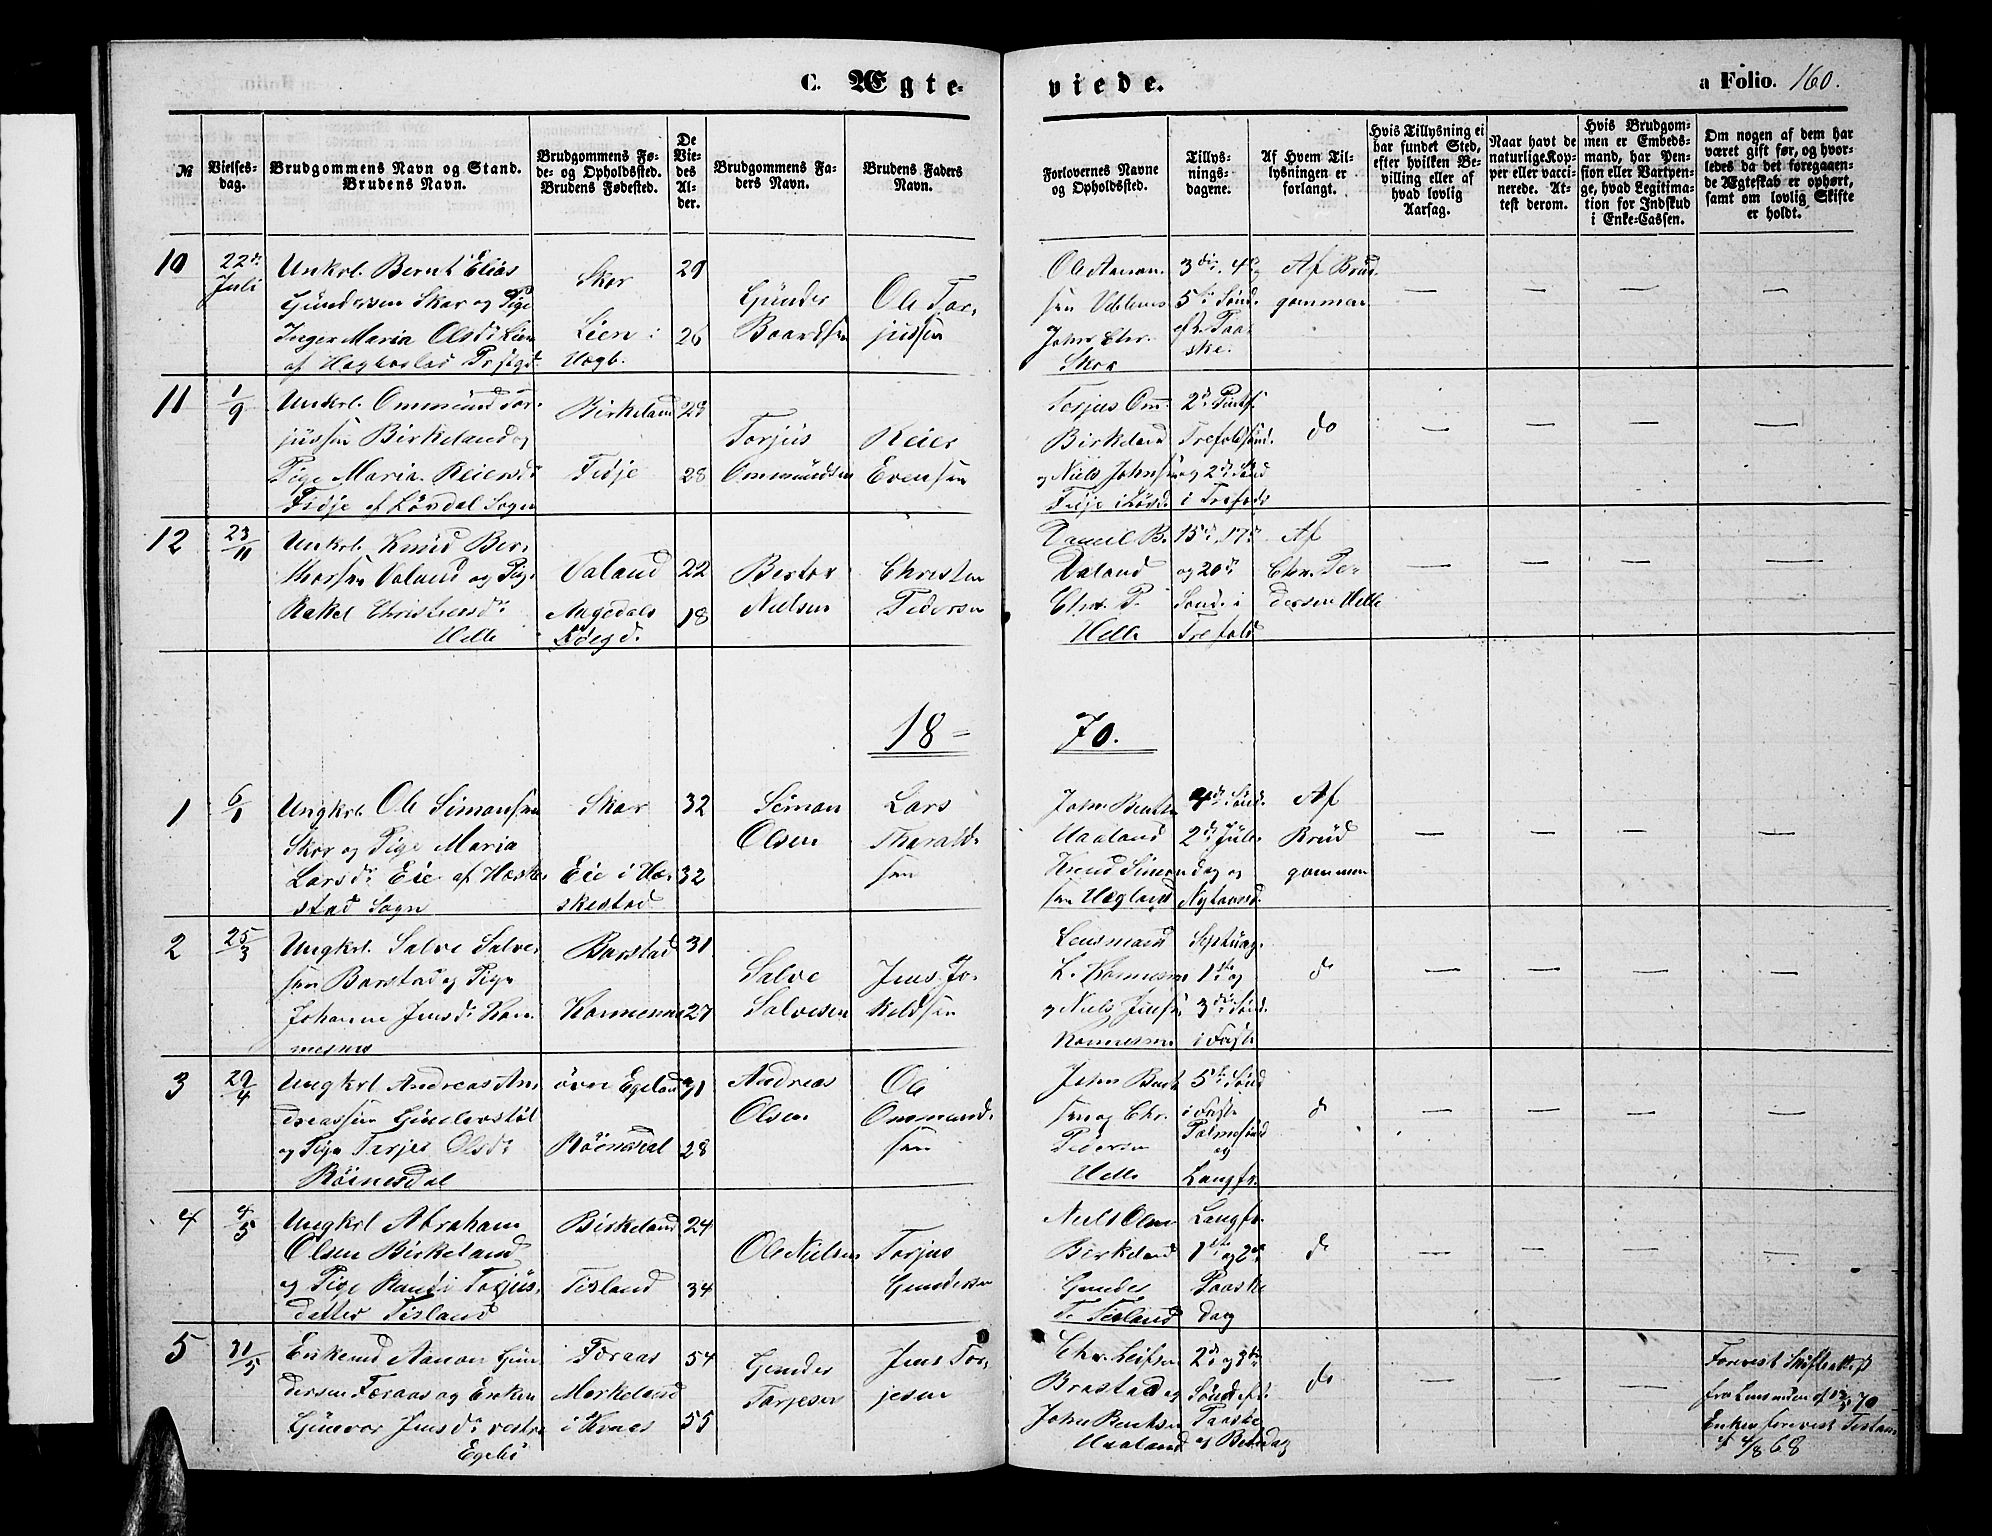 C. Ægte-
viede.
a Folio. 160.
№
Vielses-dag.
Brudgommens Navn og Stand. Brudens Navn.
Brudgommens Føde- og Opholdssted. Brudens Fødested.
De Viedes Alder.
Brudgommens Faders Navn.
Brudens Faders Navn.
Forlovernes Navne og Opholdssted.
Tillysningsdagene.
Af Hvem Tillysningen er forlangt.
Hvis Tillysning ei har fundet Sted, efter hvilken Bevilling eller af hvad lovlig Aarsag.
Naar havt de naturlige Kopper eller vaccinerede. Attest derom.
Hvis Brudgommen er Embedsmand, har Pension eller Vartpenge, hvad Legitimation for Indskud i Enke-Cassen.
Om nogen af dem har været gift før, og hvorledes da det foregaaende Ægteskab er ophørt, samt om lovlig Skifte er holdt.
10
22de Juli
Unkrl. Bernt Elias
Gundersen Skar og Pige
Inger Maria Olsd. Lien
af Hægbostad Prstgd.
Skar
Lien: Hægb.
29
26
Gunder Baardsen
Ole Torjussen
Ole Aanon-
sen
John Chr.
Skar
3die, 4de
5te Sønd.
eft. Paa-
ske.
Af Brud-
gommen
— — — —
11
1/9
Unkrl. Ommund Tor-
jussen Birkeland og
Pige Maria Reiersd.
Fidje af Lyngdal Sogn
Birkeland
Fidje
29
28
Torjus
Ommundsen
Reier
Evensen
Torjus Om.
Birkeland
og Niels Johnsen
Fidje i
2d. Pintsd.
Trefoldsønd.
og 2d. Sønd
i Trefold.
do
— — — —
12
23/11
Unkrl. Knud Ber-
Valand og Pige
Rakel Christensd.
Helle
Valand
Augedals
22
18
Nielsen
Christen
Pedersen
Daniel B.
Valand
Chr. P.
Helle
15d., 17d
og 20d.
Sønd. i
Trefold
Af
Chr. Pe-
dersen Helle
— — — —
18-
70.
1
6/1
Ungkrl. Ole Simonsen
Skar og Pige Maria
Larsd. Eie af Hæske-
stad Sogn
Skar
Eie i Hæ-
skestad
32
32
Simon
Olsen
Lars
Tharald-
sen
John Bentsen
Haaland
Knud Simon-
sen Hægland
4de Sønd.
2d. Jule-
dag og
Nytaarsd.
Af
Brud
gommen
— — — —
2
25/3
Ungkrl. Salve Salve-
sen Barstad og Pige
Johanne Jensd. Kon-
nesnes
Barstad
31
27
Salve
Salvesen
Jens Jo-
Lensmand
og Niels Jensen
Septuag.
1ste og
3die Sønd.
i Faste
do
— — — —
3
29/4
Ungkrl Andreas An-
dreassen
og Pige Terjer Olsd.
Röinesdal
øvre Egeland
Röinesdal
31
28
Andreas
Olsen
Ole
Ommund-
sen
John Bent
sen og Chr.
Pedersen
Helle
5te Sønd
i Faste
Palmesønd
og
Langfr.
do
— — — —
4
4/5
Ungkrl Abraham
Olsen Birkeland
og Pige Randi Torjus-
datter Tisland
Birkeland
Tisland
24
34
Ole Nielsen
Torjus
Gundersen
Niels Olsen
Birkeland
Gunder
T. Tisland
Langfr.
1ste og 2de
Paaske
dag
do
— — — —
5
31/5
Enkemd Aanon Gun-
dersen Faraas og Enken
Gunvor Jensd. vestre
Egebö
Faraas
Mærkeland
i Kvaas
54
55
Gunder
Torjesen
Jens Tor-
jesen
Chr. Leifsen
Brastad og
John Bentsen
Haaland
2d. og 3die
Sønd eft.
Paaske
og Bededag
do
— — —
Forevist Skifteattest
fra Lensmanden af 12/5 70
Enken forevist Testam.
af 4/8 68